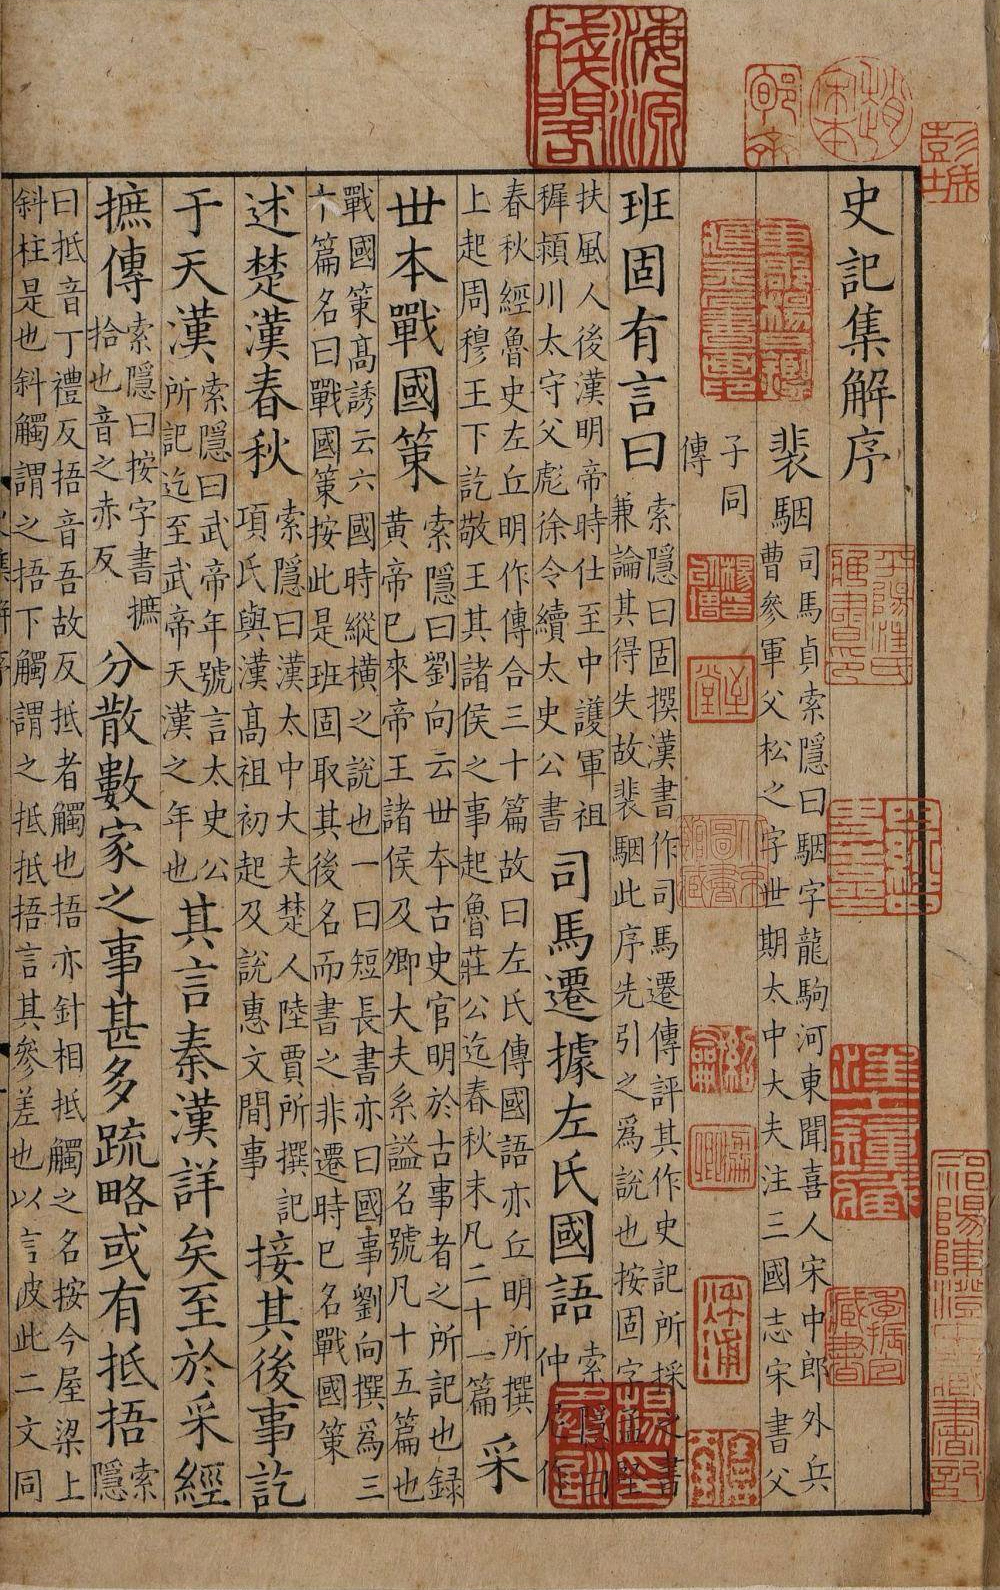 史記集解序
裴駰
司馬貞索隱曰駰字龍駒河東聞喜人宋中郎外兵
曹參軍父松之字世期太中大夫注三國志宋書父
子同
傳
班固有言曰
索隱曰固撰漢書作司馬遷傳評其作史記所採之書
兼論其得失故裴駰此序先引之爲說也按固字孟堅
扶風人後漢明帝時仕至中護軍祖
穉頴川太守父彪徐令續太史公書
司馬遷據左氏國語
索隱曰
仲尼作
春秋經魯史左丘明作傳合三十篇故曰左氏傳國語亦丘明所撰
上起周穆王下訖敬王其諸侯之事起魯莊公迄春秋末凡二十一篇
采
世本戰國策
索隱曰劉向云世本古史官明於古事者之所記也録
黄帝已來帝王諸侯及卿大夫系謚名號凡十五篇也
戰國策髙誘云六國時縱橫之說也一曰短長書亦曰國事劉向撰爲三
十篇名曰戰國策按此是班固取其後名而書之非遷時已名戰國策
述楚漢春秋
索隱曰漢太中大夫楚人陸賈所撰記
項氏與漢髙祖初起及說惠文間事
接其後事訖
于天漢
索隱曰武帝年號言太史公
所記迄至武帝天漢之年也
其言秦漢詳矣至於采經
摭傳
索隱曰按字書摭
拾也音之赤反
分散數家之事甚多疏略或有抵捂
索
隱
曰抵音丁禮反捂音吾故反抵者觸也捂亦針相抵觸之名按今屋梁上
斜柱是也斜觸謂之捂下觸謂之抵抵捂言其參差也以言彼此二文同
海源
殘閣
趙
宋本
彭城
楊氏
汪士鐘藏
祁陽陳澄中藏書記